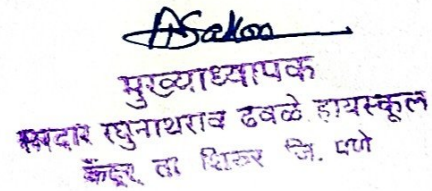 मुख्याध्यापक
रघुनाथराव ढवळे हायस्कूल
केंदूर, ता शिरूर जि. पुणे